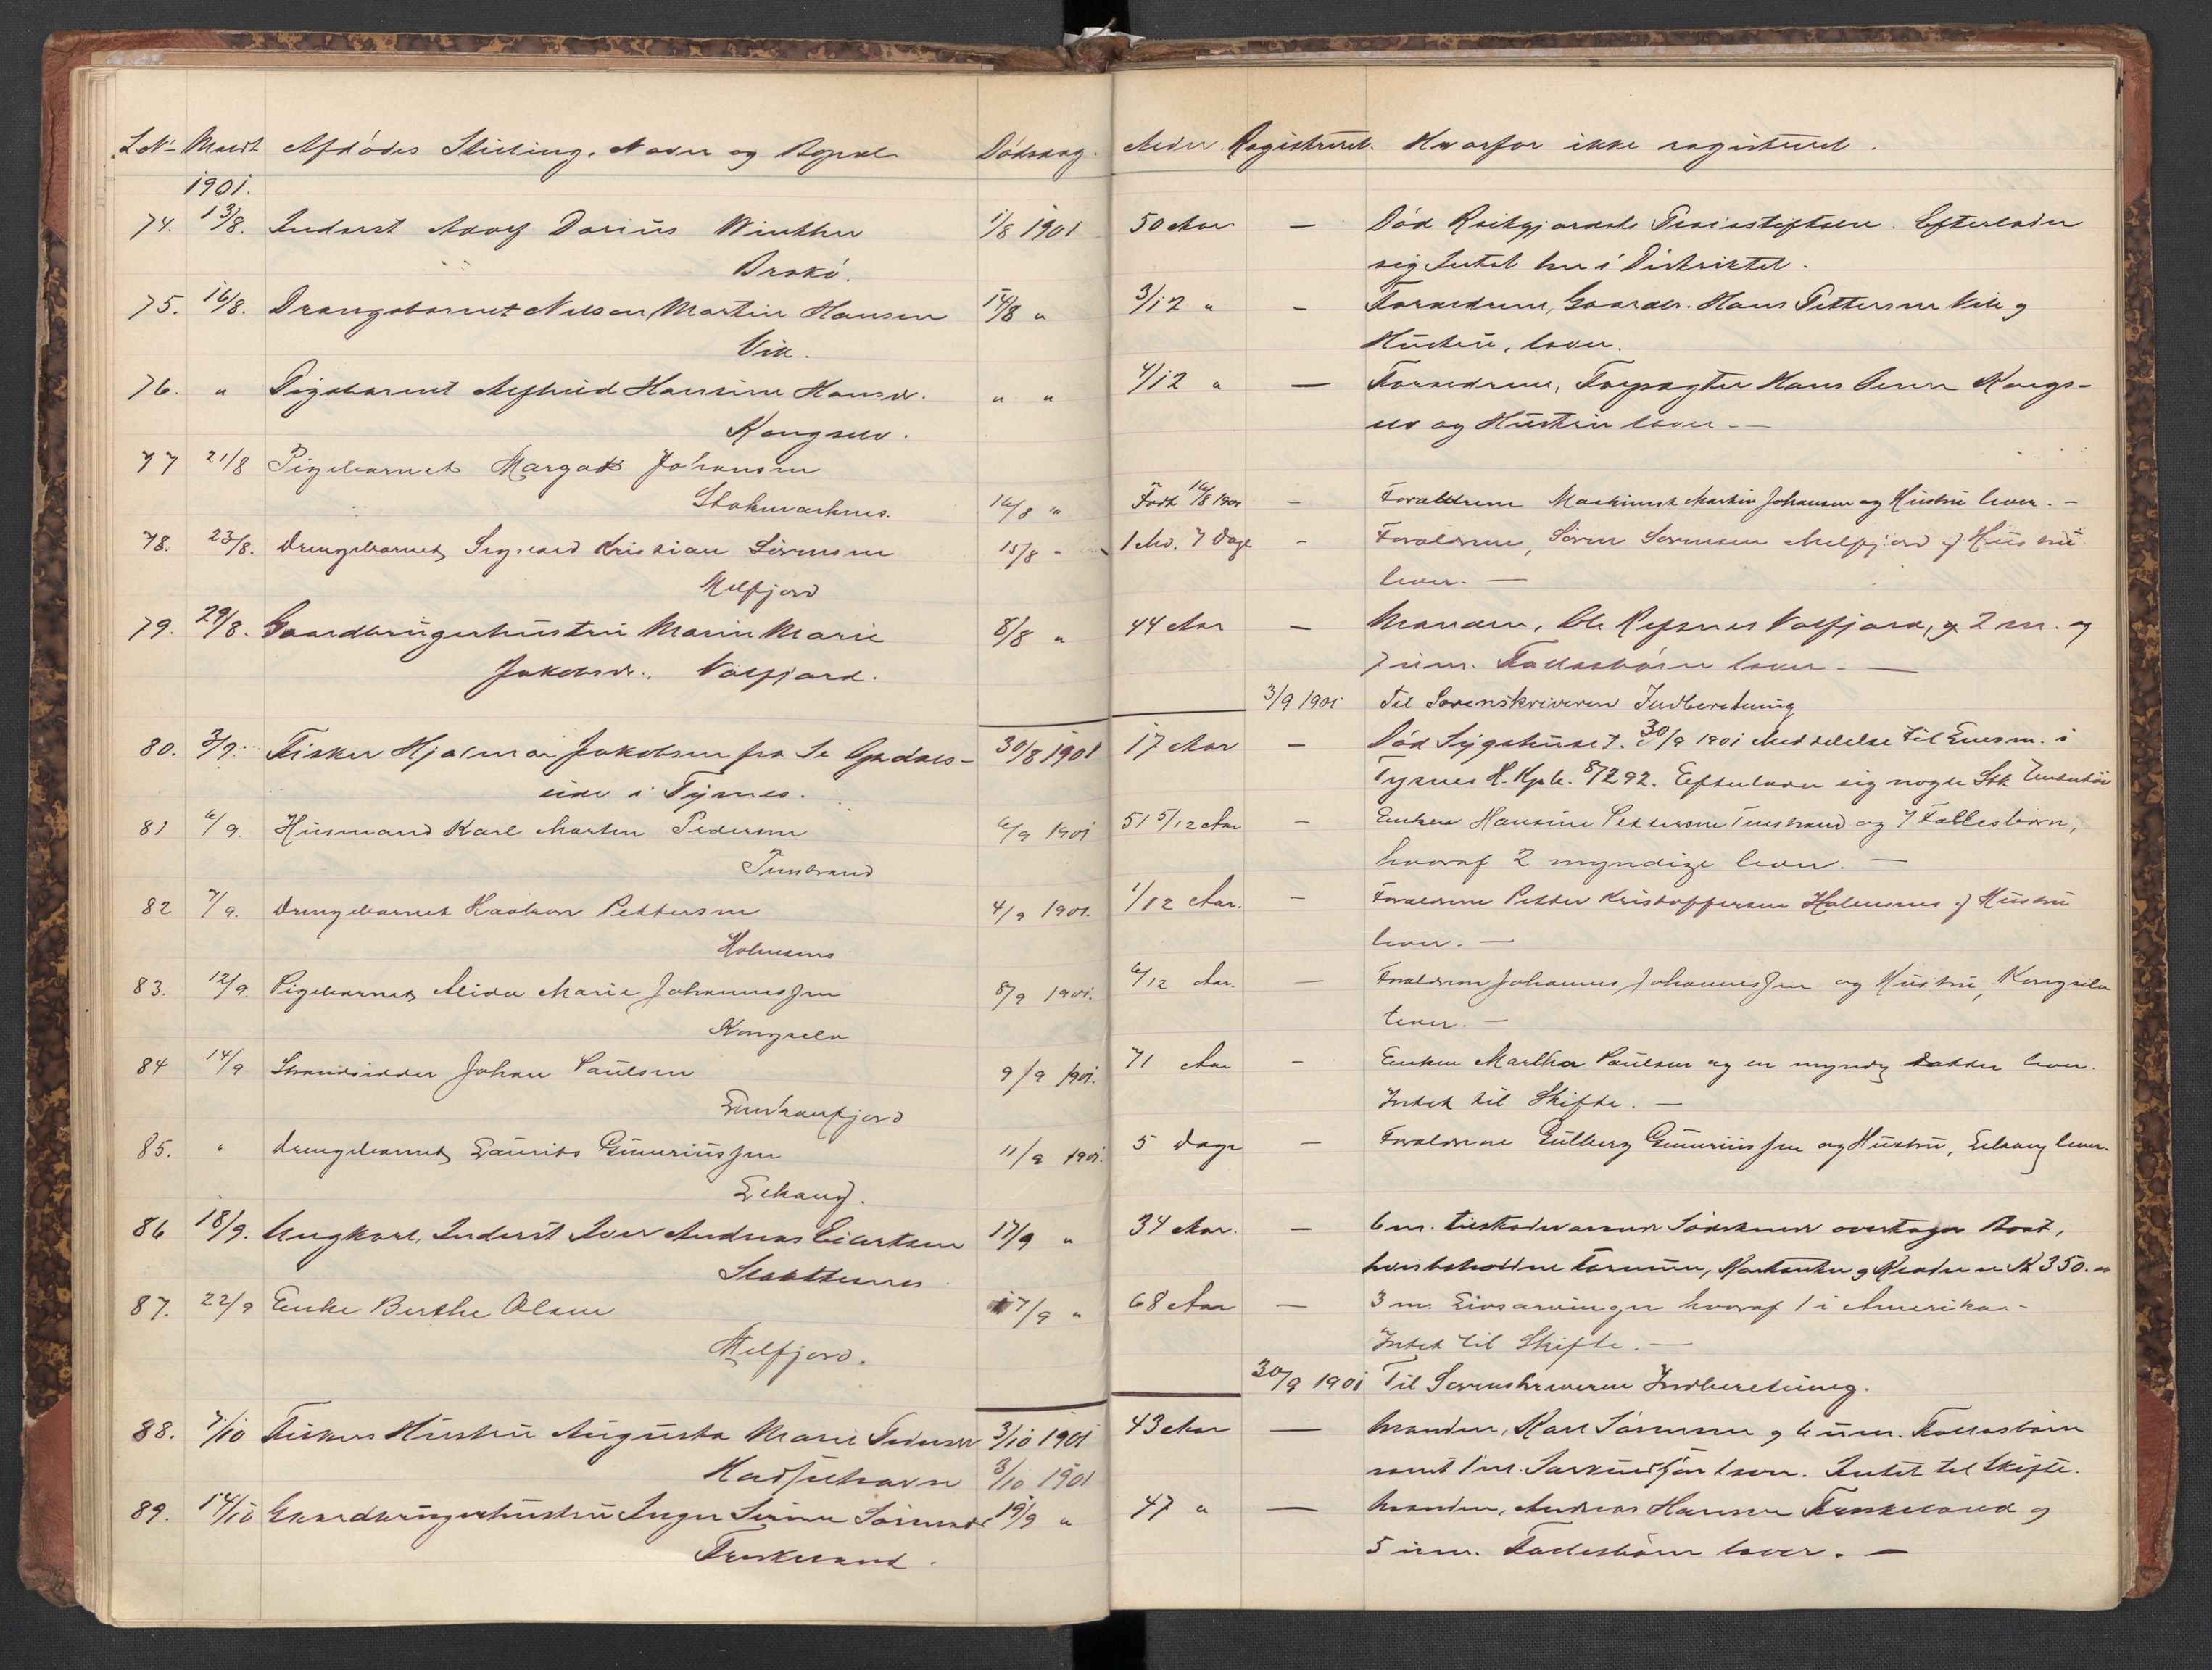 L.No Meldt Afdødes Stilling, Navn og Bopæl Dødsdag. Alder. Registreret. Hvorfor ikke registreret.
1901.
74. 13/8. Inderst Adolf Darius Winther 1/8 1901 50 Aar — Død Reitgjærdets Pleiestiftelse. Efterlader
Brokø. sig Intet her i Distriktet.
75. 16/8. Drengebarnet Nilson Martin Hansen 14/8 " 3/12 " – Forældrene, Gaardbr. Hans Pettersen Vik og
Vik. Hustru, lever.
76. " Pigebarnet Alfhild Hansine Hansd. " " 4/12 " — Forældrene, Forpagter Hans Kongs-
Kongselv. elv og Hustru lever.—
77 21/8 Pigebarnet Margot Johansen
Stokmarknes. 16/8 " Født 16/8 1901 – Forældrene Maskinist Martin Johansen og Hustru lever.–
78. 23/8. Drengebarnet Sigvard Kristian Sørensen 15/8 " 1 Md. 7 Dage – Forældrene, Søren Sørensen Melfjord og Hustru
Melfjord lever.—
79. 29/8. Gaardbrugerhustru Marie Marie 8/8 " 44 Aar – Manden, Ole Valfjord, og 2 m. og
Jakobsd., Valfjord. 7 um. Fællesbørn lever.—
3/9 1901 Til Sorenskriveren Indberetning
80. 3/9. Fisker Hjalmar Jakobsen fra Se Opdals- 30/8 1901 17 Aar – Død Sygehuset. 30/9 1901 Meddelelse til Lensm. i
eide i Tysnes. Tysnes H. Kpb. 8/292. Efterlader sig nogle Stk
81 6/9. Husmand Karl Martin Pedersen 6/9 1901 51 5/12 Aar – Enken Hansine Pettersen Tunstrand og 7 Fællesbørn,
Tunstrand hvoraf 2 myndige lever.—
82 7/9. Drengebarnet Haakon Pettersen 4/9 1901. 1/12 Aar. – Forældrene Petter Kristoffersen Holmsnes og Hustru
Holmsnes lever.—
83. 12/9. Pigebarnet Alida Marie Johannessen 8/9 1901. 6/12 Aar. — Forældrene Johannes Johannessen og Hustru, Kongselv
Kongselv lever.—
84 14/9 Strandsidder Johan Paulsen 9/9 1901. 71 Aar – Enken Martha Paulsen og en myndig Datter lever.
Lunkanfjord Intet til Skifte.—
85. " Drengebarnet Laurits Guneriussen 11/9 1901. 5 Dage – Forældrene Gulberg Guneriussen og Hustru, Eehaug lever.
Eehaug.
86 18/9. Ungkarl, Inderst Iver Andreas Eilertsen 17/9 " 34 Aar. – 6 m. tilstedeværende Sødskende overtager Boet,
hvis beholdne Formue, Kontanter og er K 350.
87. 22/9 Enke Berthe Olsen 17/9 " 68 Aar — 3 m. Livsarvinger hvoraf 1 i Amerika.–
Melfjord. Intet til Skifte.—
30/9 1901 Til Sorenskriveren Indberetning.
88. 7/10 Fiskers Hustru Augusta Marie Pedersd. 3/10 1901 43 Aar — Manden, Karl Sørensen og 6 um. Fællesbørn
Hadselhavn 3/10 1901 samt 1 m. Særkuldsøn lever. Intet til Skifte.
89. 14/10 Gaardbrugerhustru Inger Sørensd. 19/9 " 47 " — Manden, Andreas Hansen Fiskesand og
Fiskesand. 5 um. Fællesbørn lever.—